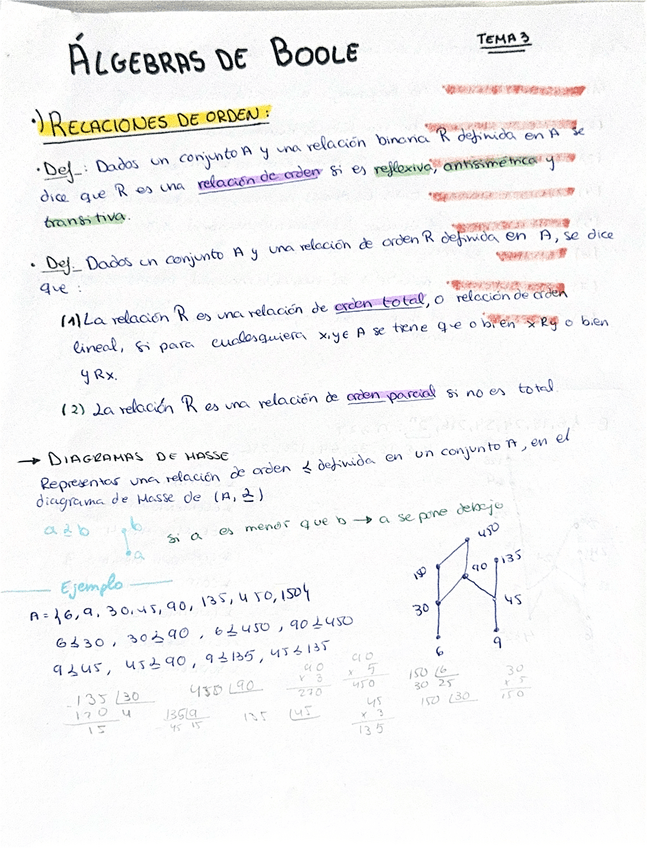 ÁLGEBRAS DE BOOLE
TEMA 3
·) RELACIONES DE ORDEN:
· Def_: Dados un conjunto A y una relación binaria R definida en A se
dice que R es una relación de orden si es reflexiva, antisimétrica y
transitiva.
· Def_ Dados un conjunto A y una relación de orden R definida en A, se dice
que:
(1) La relación R es una relación de orden total, o relación de orden
lineal, si para cualesquiera x,y∈A se tiene que o bien xRy o bien
yRx.
(2) La relación R es una relación de orden parcial si no es total.
→ DIAGRAMAS DE HASSE
Representar una relación de orden ≤ definida en un conjunto A, en el
diagrama de Hasse de (A, ≤)
a ≤ b
b
a
si a es menor que b → a se pone debajo
Ejemplo
A = {6, 9, 30, 45, 90, 135, 450, 150}
6 ≤ 30, 30 ≤ 90, 6 ≤ 450, 90 ≤ 450
9 ≤ 45, 45 ≤ 90, 9 ≤ 135, 45 ≤ 135
450
90
135
30
45
6
9
135 30
4
15
450 90
135 9
45 15
135 45
90
x 3
270
90
x 5
450
45
x 3
135
150 6
30 25
150 30
30
x 5
150